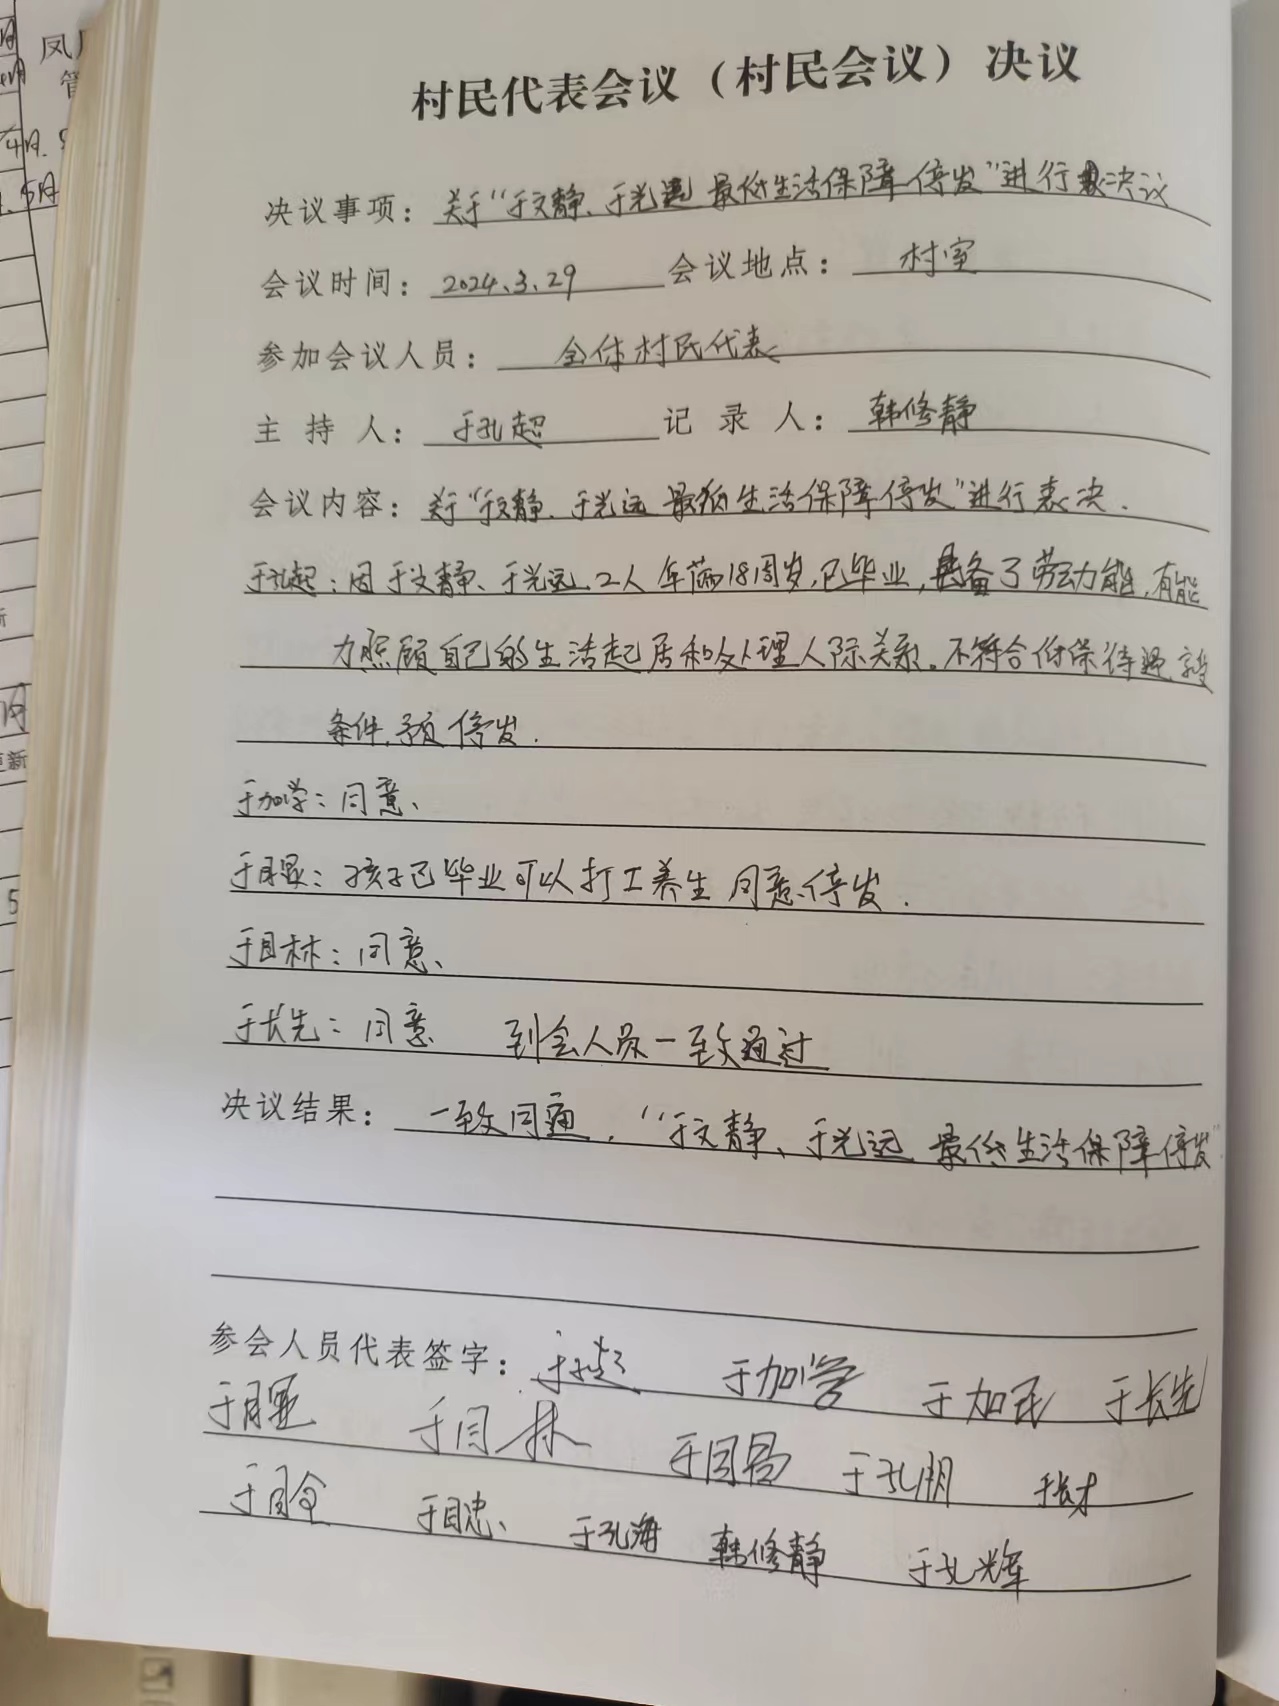 凤
管
村民代表会议（村民会议）决议
决议事项：关于“于文静、于光远 最低生活保障停发”进行表决议
会议时间：2024.3.29 会议地点：村室
参加会议人员：全体村民代表
主持人：于孔超 记录人：韩修静
会议内容：关于“于文静、于光远 最低生活保障停发”进行表决.
于孔超：因于文静、于光远 2人年满18周岁,已毕业,具备了劳动能,有能
力照顾自己的生活起居和处理人际关系。不符合低保待遇享受
条件,予以停发.
于加学：同意、
孩子已毕业可以打工养生 同意停发.
同意、
于长先：同意 到会人员一致通过
决议结果：一致同通，“于文静、于光远 最低生活保障停发”
参会人员代表签字：于孔超 于加学 于加民 于长先
于孔明 于长才
于孔海 韩修静 于孔辉